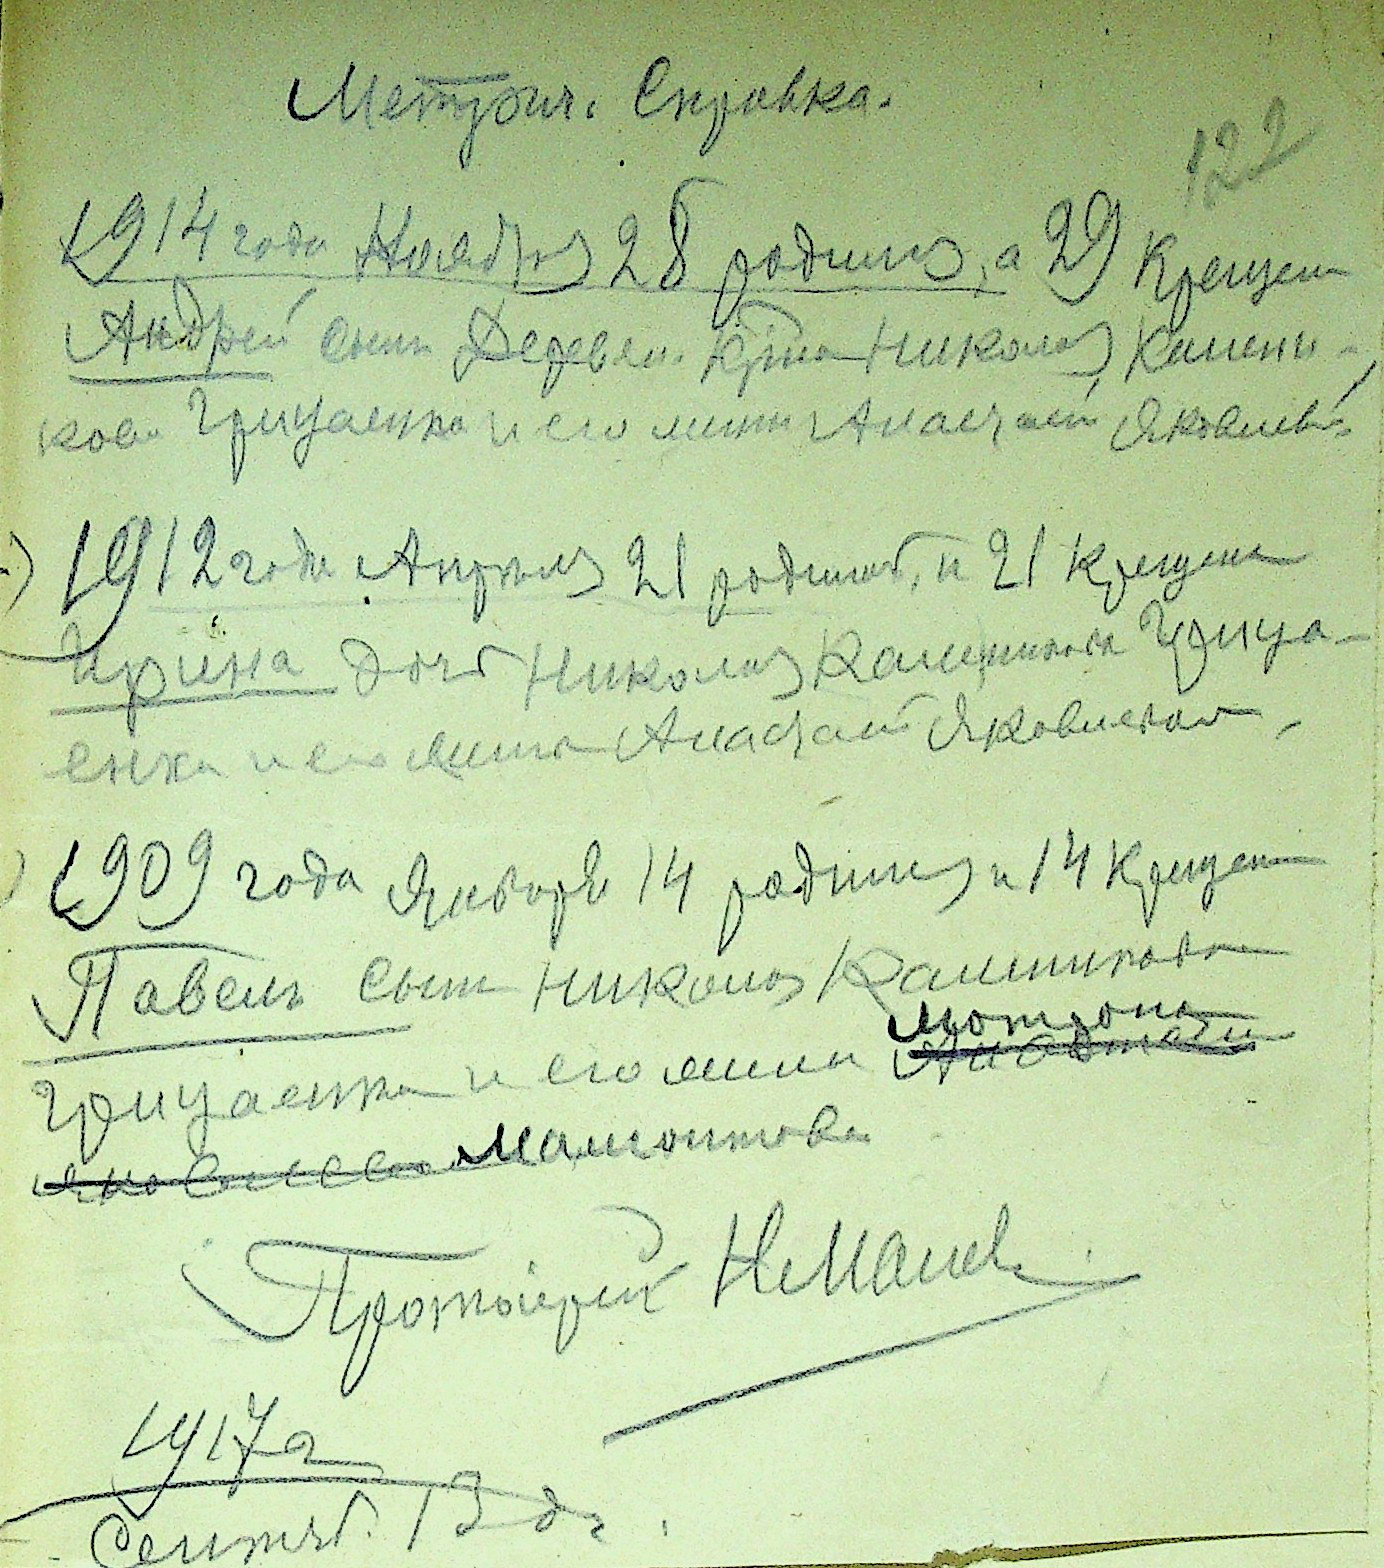 Метрич. Справка.
122
1914 года Ноября 28 родился, а 29 Крещен
Андрей сын Деревен. Кр-на Николая Калени-
кова Грицаенка и его жены Анастасіи Яковлев.
1912 года Апреля 21 родилась, и 21 Крещена
Ирина дочь Николая Каленикова Грица-
енка и его жены Анастасіи Яковлевой
1909 года Января 14 родился и 14 Крещен
Павелъ сын Николая Каленикова
Матрона
Грицаенка и его жены Анастасіи
Яковлевой Мамонтова
Протоіерей
1917 г
Сентяб. 13 д.